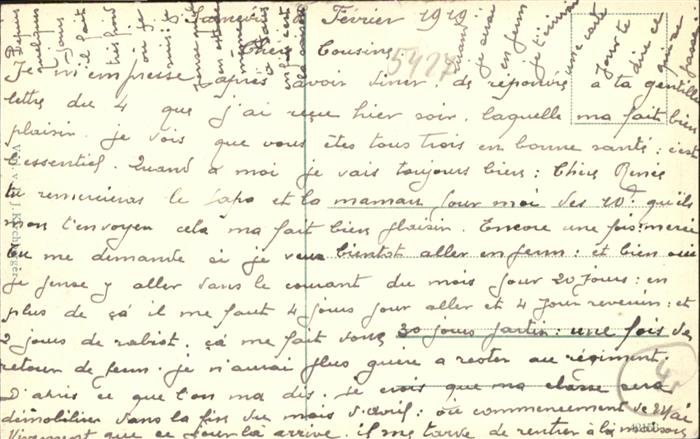 Février 1919
Chère Cousine
5427
Je m'empresse après avoir diner, de reponvre a ta gentille
lettre du 4 que j'ai reçue hier soir, laquelle ma fait bien
plaisir. je vois que vous êtes tous trois en bonne santé : c'est
l'essentiel. Quand a moi je vais toujours bien : Chère Renée
tu remercieras le papa et la maman pour moi des 10f qu'ils
mon t'envoyer cela ma fait bien plaisir. Encore une fois merci
tu me demande si je veux bientot aller en perm : et bien oui
je pense y aller dans le courant du mois pour 20 jours : en
plus de ça il me faut 4 jours pour aller et 4 pour revenir : et
2 jours de rabiot. çà me fait donc 30 jours partir : une fois de
retour de perm. je n'aurai plus guère a rester au régiment.
D'après ce que l'on ma dis. je crois que ma classe sera
démobiliser dans la fin du mois d'avril : ou commencement de Mai
Vivement que ce jour la arrive. il me tarde de rentrer à la maison
Depuis
quelques
jours
il fait
très froid
quand
je serai
en perm
je t'
une carte
pour te
dire ce